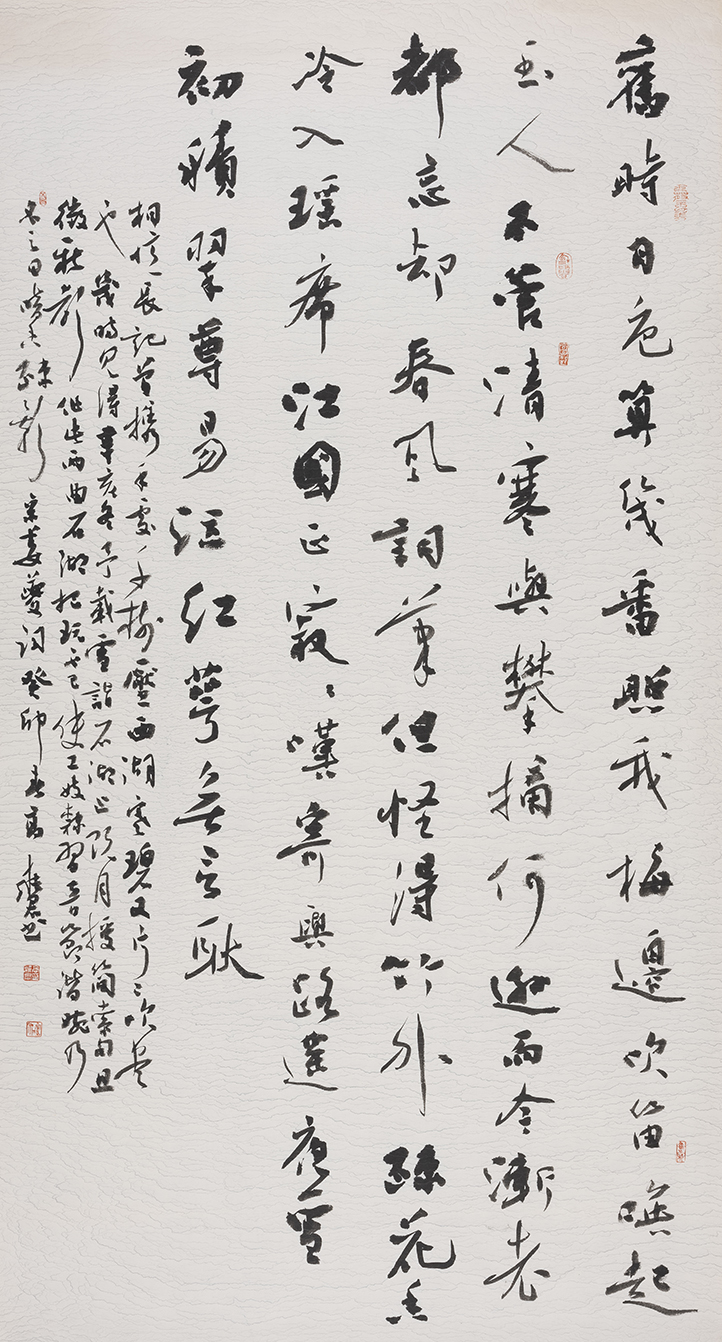 舊時月色算幾番照我梅邊吹笛喚起
玉人不管清寒與攀摘何遜而今漸老
都忘却春風詞筆但怪得竹外疎花香
冷入瑶席江國正寂〻嘆寄與路遥夜雪
初積翠尊易泣紅萼無言耿
相憶長記曾攜手處千樹壓西湖寒碧又片〻吹盡
也幾時見得辛亥冬予載雪詣石湖止既月授簡索句且
徵新影作此兩曲石湖把玩不已使工妓隸習音節諧婉乃
名之曰暗香疎影宋姜夔詞癸卯春高書